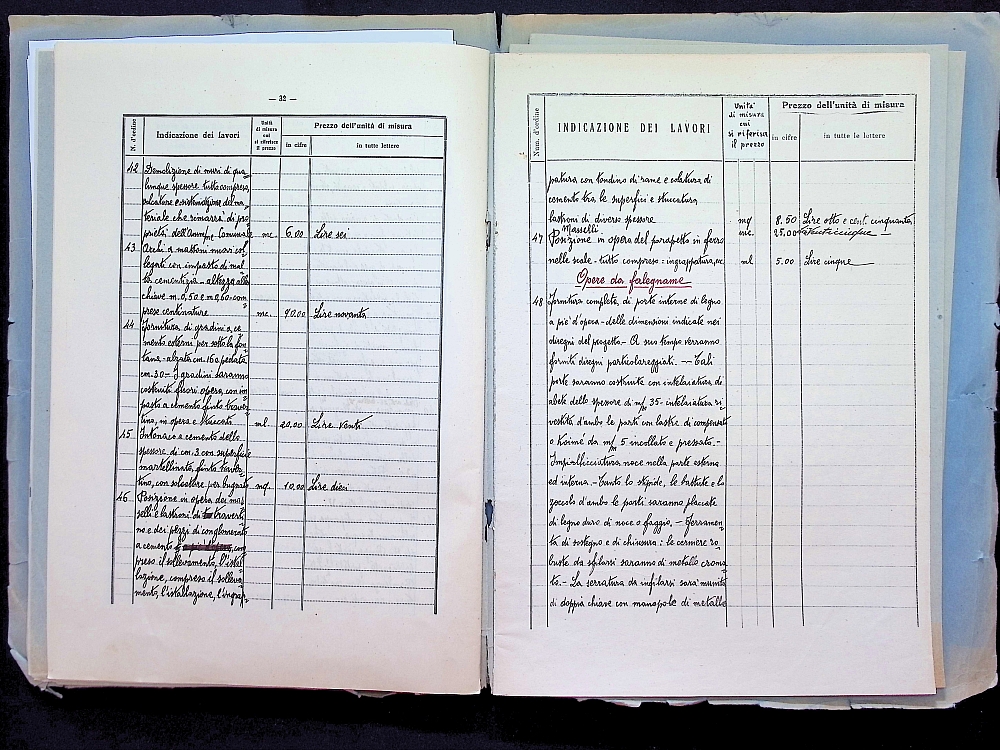 — 32 —
N. d'ordine
Indicazione dei lavori
Unità di misura cui si riferisce il prezzo
Prezzo dell'unità di misura
in cifre
in tutte lettere
42 Demolizione di muri di qua-
lunque spessore tutto compreso,
scalcature e sistemazione del ma-
teriale che rimarrà di pro-
prietà dell'Amm/ne Comunale mc. 6.00 Lire sei
43 Archi a mattoni muri col-
legati con impasto di mal-
ta cementizia - altezza alla
chiave m. 0,50 e m. 0,60 com-
prese centinature mc. 90.00 Lire novanta
44 Fornitura di gradini a ce-
mento esterni per sotto la fon-
tana - alzata cm. 16 a pedata
cm. 30 - I gradini saranno
costruiti fuori opera, con im-
pasto a cemento finto traver-
tino, in opera e stuccato ml. 20.00 Lire venti
45 Intonaco a cemento dello
spessore di cm. 3 con superficie
martellinata, finto traver-
tino, con scl per bugnato mq. 10.00 Lire dieci
46 Posizione in opera dei mas-
selli e lastroni di traverti-
no e dei pezzi di conglomerato
a cemento com-
preso il sollevamento, l'istal-
lazione, compreso il solleva-
mento, l'istallazione, l'ingrap-
Num. d'ordine
INDICAZIONE DEI LAVORI
Unita' di misura cui si riferisce il prezzo
Prezzo dell'unità di misura
in cifre
in tutte le lettere
patura con tondino di rame e colatura di
cemento tra le superfici e stuccatura
lastroni di diverso spessore mq 8.50 Lire otto e cent. cinquanta
Masselli mc. 25.00 venticinque
47 Posizione in opera del parapetto in ferro
nelle scale - tutto compreso: ingrappatura, ecc ml 5.00 Lire cinque
Opere da falegname
48 Fornitura completa, di porte interne di legno
a pie' d'opera - delle dimensioni indicate nei
disegni del progetto - A suo tempo verranno
forniti disegni particolareggiati. — Tali
porte saranno costruite con intelaiatura di
abete dello spessore di m/m 35 - intelaiatura ri-
vestita d'ambo le parti con lastre di compensato
o Koimé da m/m 5 incollato e pressato. -
Impiallicciatura noce nella parte esterna
ed interna. - Tanto lo stipide, le battute e lo
zoccolo d'ambo le parti saranno placcate
di legno duro di noce o faggio. — Ferramen-
ta di sostegno e di chiusura: le cerniere ro-
buste da sfilarsi saranno di metallo croma-
to. - La serratura da infilarsi sara' munita
di doppia chiave con manopole di metallo